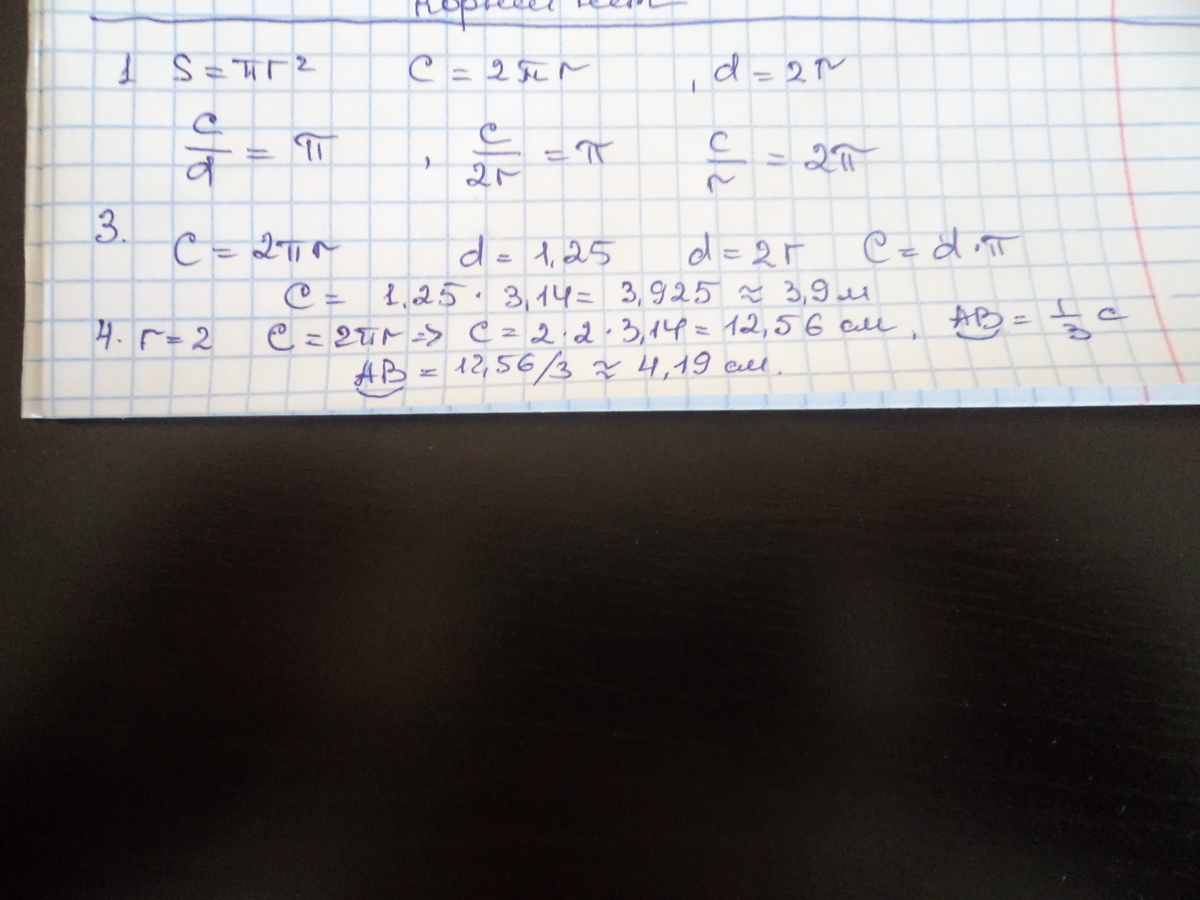 корней нет
1 S = πr² C = 2πr , d = 2r
c/d = π , c/2r = π c/r = 2π
3. C = 2πr d = 1,25 d = 2r C = d·π
C = 1.25 · 3,14 = 3,925 ≈ 3,9 м
4. r = 2 C = 2πr => C = 2·2·3,14 = 12,56 см, AB = 1/3 c
AB = 12,56/3 ≈ 4,19 см.